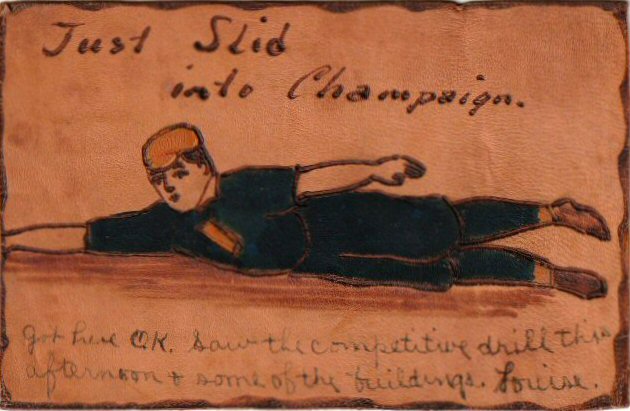 Just Slid
into Champaign.
Got here OK. Saw the competitive drill this
afternoon + some of the buildings. Louise.